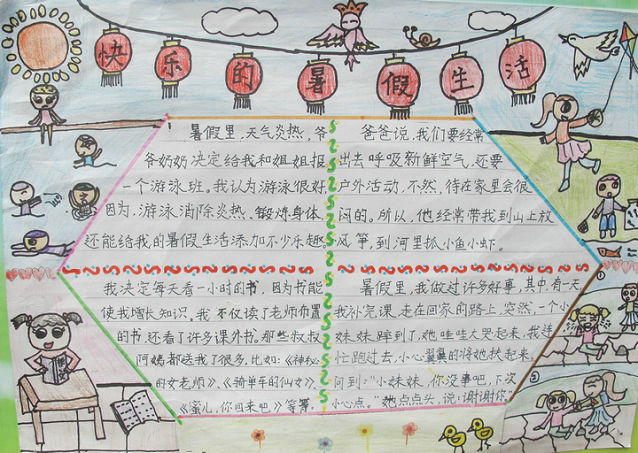 快乐的暑假生活
暑假里,天气炎热,爷
爷奶奶决定给我和姐姐报
一个游泳班。我认为游泳很好,
因为,游泳消除炎热、锻炼身体,
还能给我的暑假生活添加不少乐趣。
爸爸说,我们要经常
出去呼吸新鲜空气,还要
户外活动,不然,待在家里会很
闷的。所以,他经常带我到山上放
风筝,到河里抓小鱼小虾。
我决定每天看一小时的书,因为书能
使我增长知识。我不仅读了老师布置
的书,还看了许多课外书,那些叔叔
阿姨都送我了很多,比如:《神秘
的女老师》、《骑单车的仙女》、
《蜜儿,你回来吧》等等。
暑假里,我做过许多好事,其中,有一天
我补完课,走在回家的路上,突然,一个小
妹妹摔到了,她哇哇大哭起来,我连
忙跑过去,小心翼翼的将她扶起来。
问到:“小妹妹,你没事吧,下次
小心点。”她点点头,说:“谢谢你”
①
②